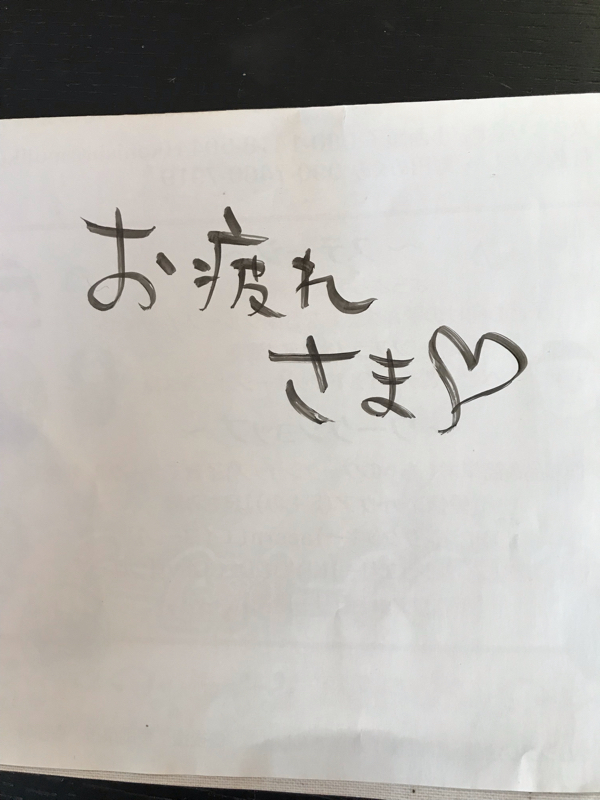 お疲れ
さま♡